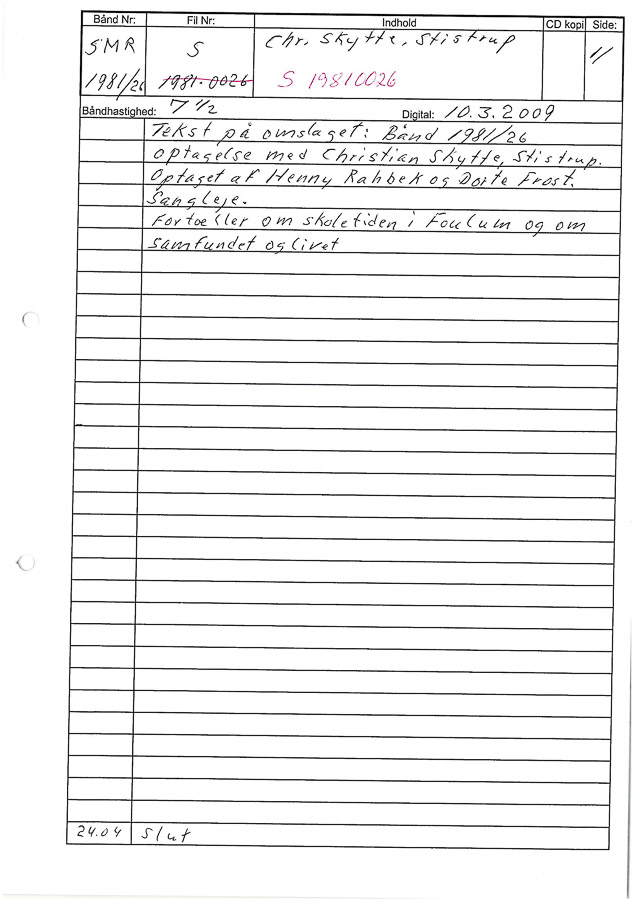 Bånd Nr: Fil Nr: Indhold CD kopi Side:
SMR S Chr. Skytte, Stistrup 1/
1981/26 1981-0026 S 19810026
Båndhastighed: 7 1/2 Digital: 10.3.2009
Tekst på omslaget: Bånd 1981/26
optagelse med Christian Skytte, Stistrup.
Optaget af Henny Rahbek og Dorte Frost.
Sangleje.
Fortæller om skoletiden i Foulum og om
samfundet og livet
24.04 Slut